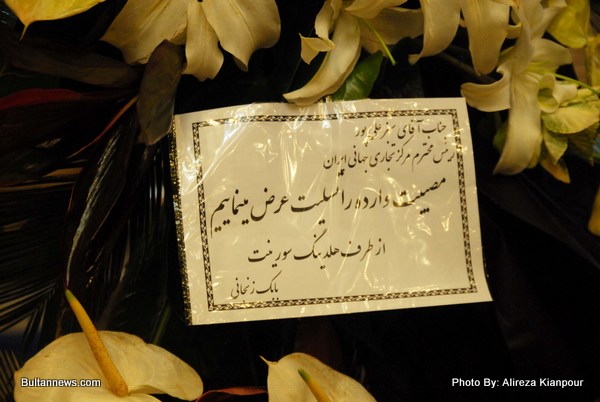 جناب آقای صفرعلی پور
رئیس محترم مرکز تجاری جهانی ایران
مصیبت وارده را تسلیت عرض مینماییم
از طرف هلدینگ سورینت
بابک زنجانی
Bultannews.com
Photo By: Alireza Kianpour